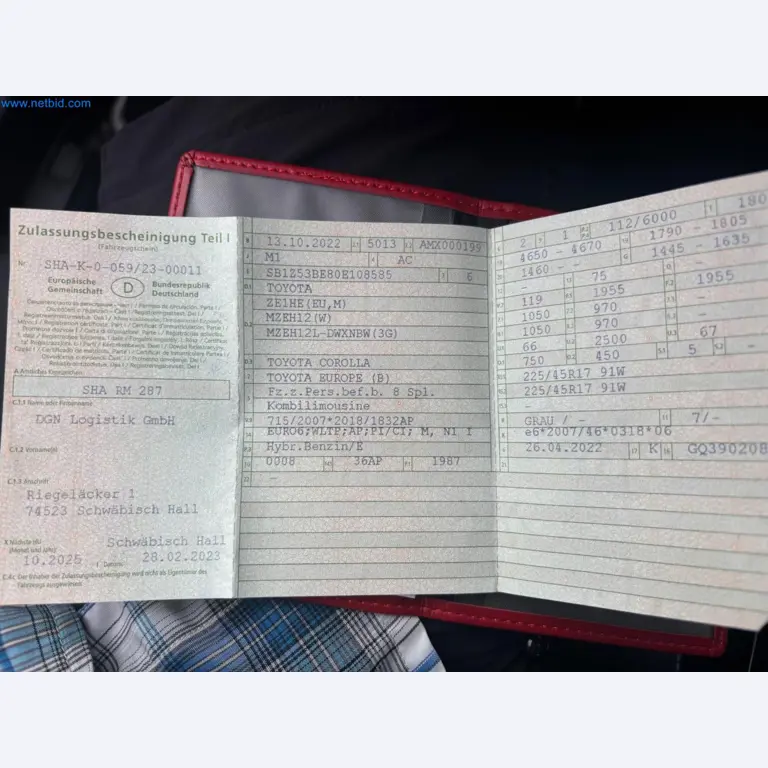 www.netbid.com
Zulassungsbescheinigung Teil I
(Fahrzeugschein)
Nr. SHA-K-0-059/23-00011
Europäische Gemeinschaft
D
Bundesrepublik Deutschland
A Amtliches Kennzeichen
SHA RM 287
C.1.1 Name oder Firmenname
DGN Logistik GmbH
C.1.2 Vorname(n)
C.1.3 Anschrift
Riegeläcker 1
74523 Schwäbisch Hall
Schwäbisch Hall
10.2025
28.02.2023
C.4c Der Inhaber der Zulassungsbescheinigung wird nicht als Eigentümer des Fahrzeugs ausgewiesen.
B 13.10.2022 2.1 5013 2.2 AMX000199
J M1 4 AC
E SB1Z53BE80E108585 3 6
TOYOTA
ZE1HE(EU,M)
MZEH12(W)
MZEH12L-DWXNBW(3G)
TOYOTA COROLLA
TOYOTA EUROPE (B)
Fz.z.Pers.bef.b. 8 Spl.
Kombilimousine
715/2007*2018/1832AP
EURO6;WLTP;AP;PI/CI; M, N1 I
Hybr.Benzin/E
0008 36AP 1987
-
2 1 112/6000 180
4650 - 4670 1790 - 1805
1460 - - 1445 - 1635
- 75 -
119 1955 1955
1050 970 -
1050 970 -
66 2500 67
750 450 5 -
225/45R17 91W
225/45R17 91W
-
GRAU / - 7/-
e6*2007/46*0318*06
26.04.2022 17 K 16 GQ390208